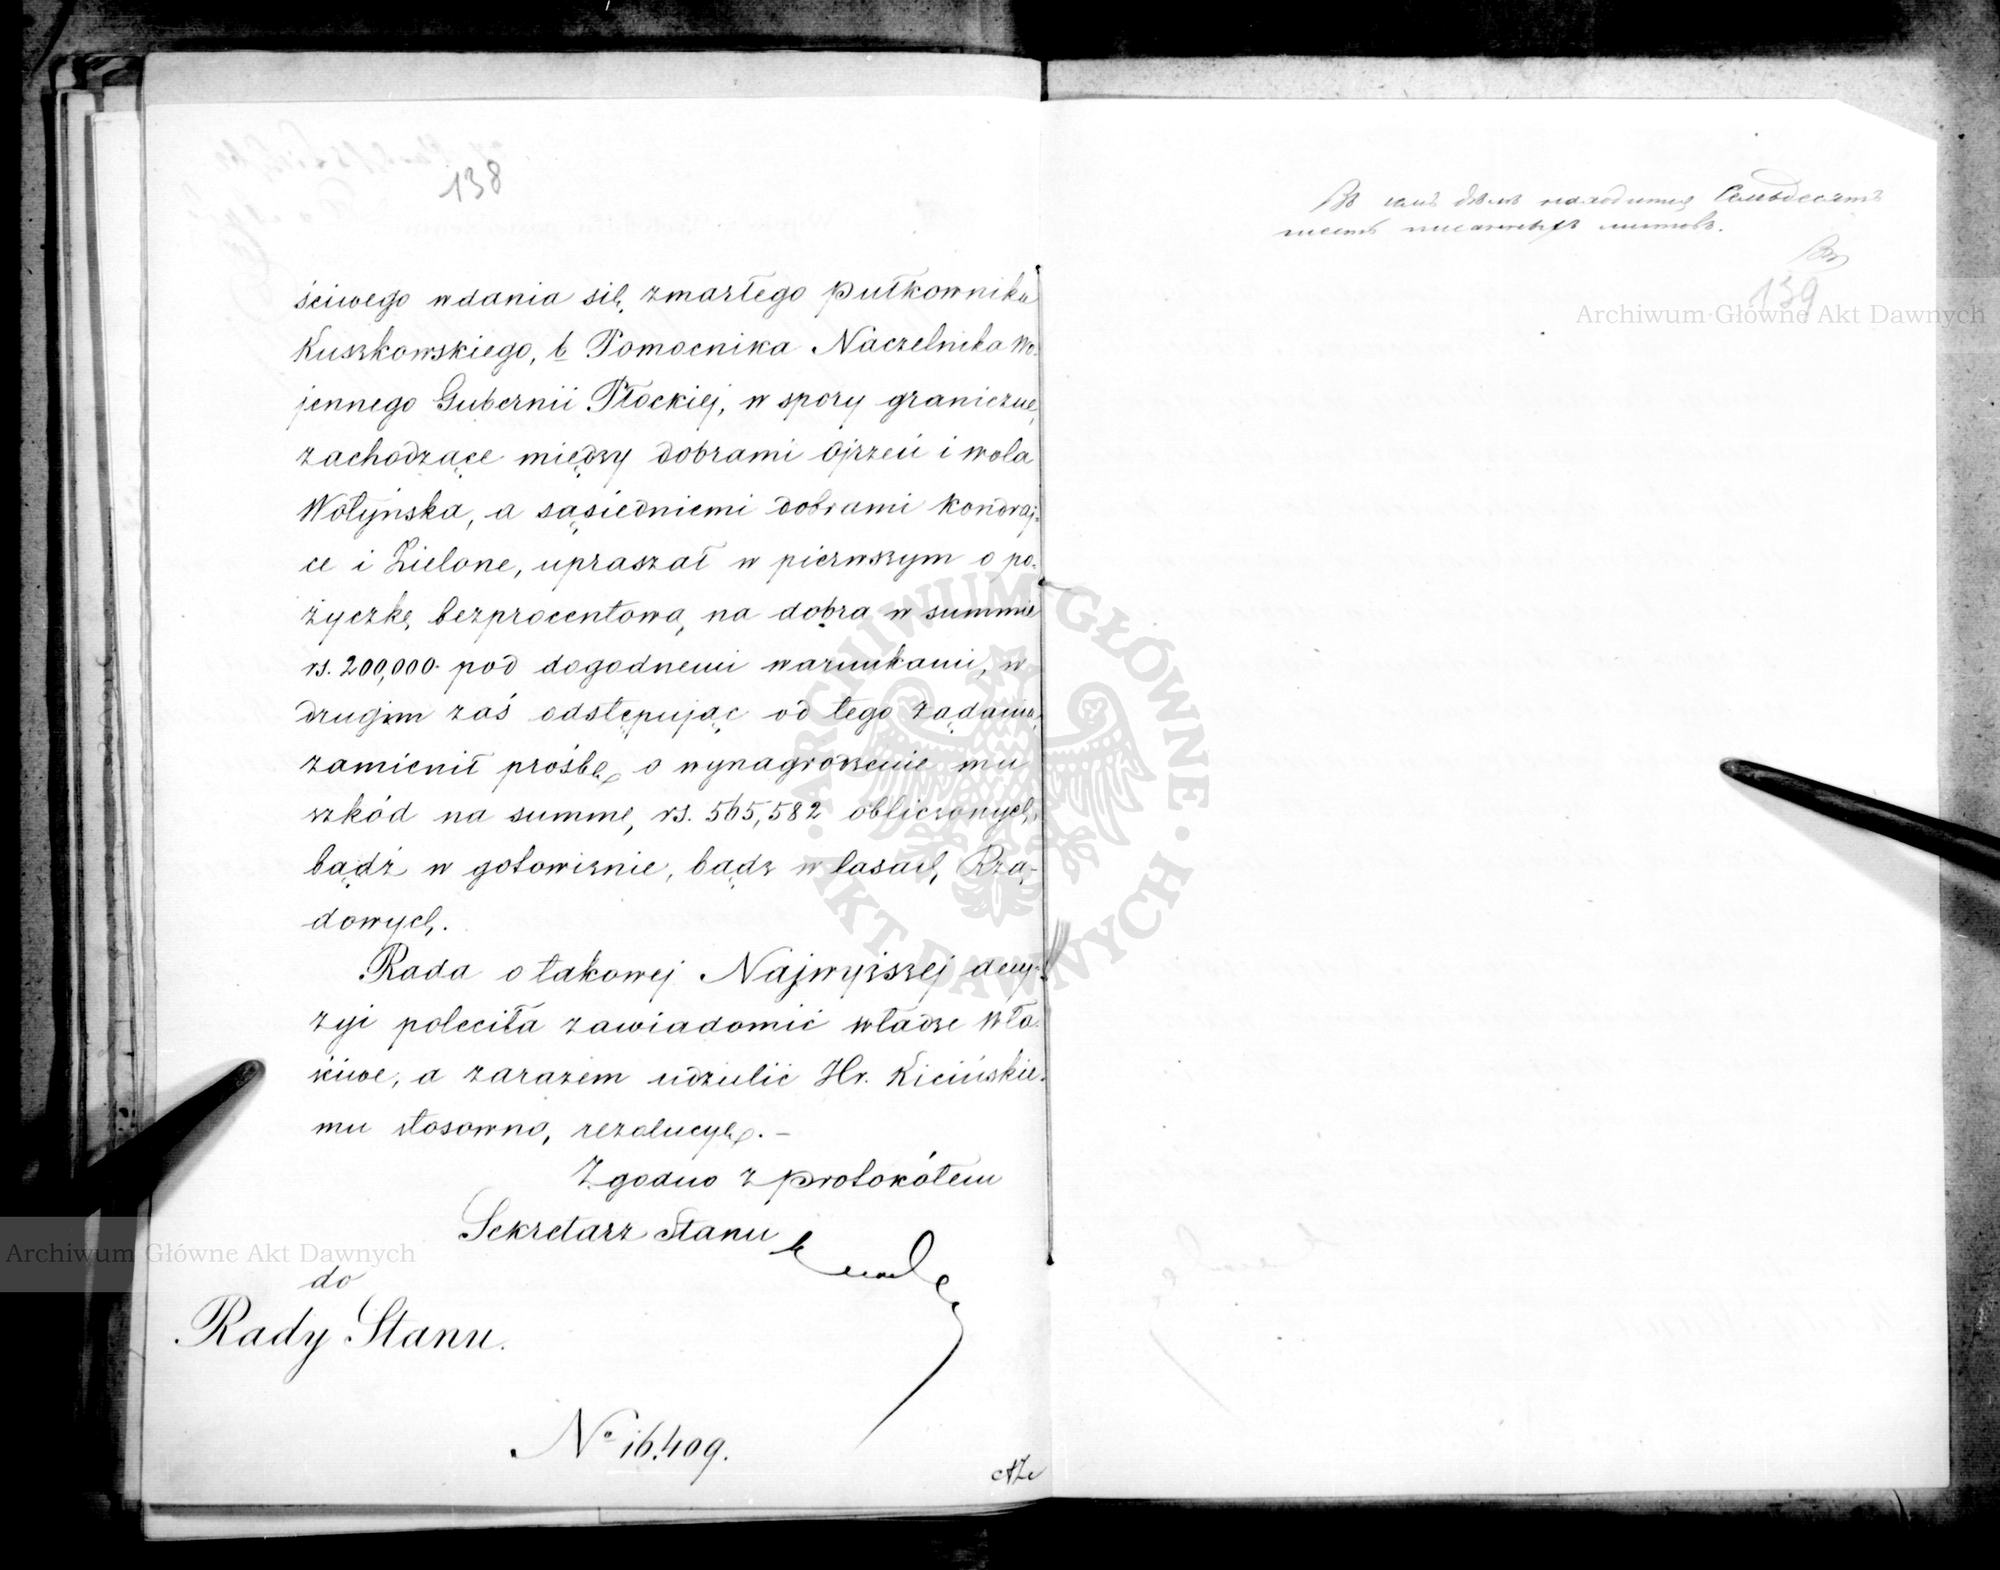 138
ściwego wdania się zmarłego pułkownika
Kuszkowskiego, b Pomocnika Naczelnika Wo-
jennego Gubernii Płockiej, w spory graniczne,
zachodzące między dobrami Ojrzeń i Wola
Wołyńska, a sąsiedniemi dobrami Kondraj-
ce i Zielone, upraszał w pierwszym o po-
życzkę bezprocentową na dobra w summie
rs. 200,000 pod dogodnemi warunkami, w
drugim zaś odstępując od tego żądania,
zamienił prośbę o wynagrodzenie mu
szkód na summę rs. 565,582 obliczonych,
bądź w gotowiznie, bądz w lasach Rzą-
dowych.
Rada o takowej Najwyższej decy-
zyi poleciła zawiadomić władze wła-
ściwe, a zarazem udzielić Hr. Kicińskie-
mu stosowną rezolucyę. –
Zgodno z protokółem
Sekretarz Stanu
do
Rady Stanu.
No 16.409.
Въ семъ дѣлѣ находится Семьдесятъ
шесть писанныхъ листовъ.
139
Archiwum Główne Akt Dawnych
Archiwum Główne Akt Dawnych
ARCHIWUM GŁÓWNE · AKT DAWNYCH ·